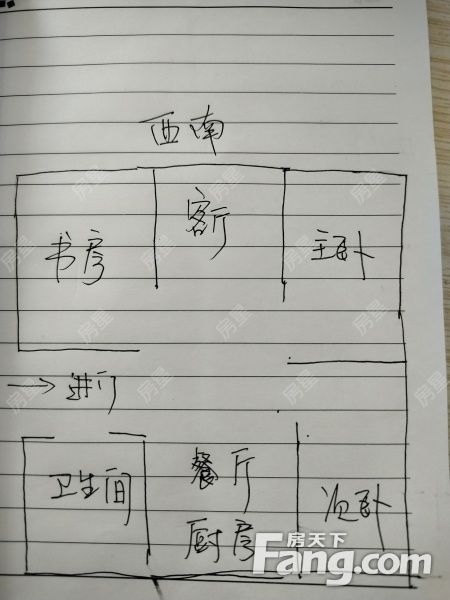 西南
书房
客厅
主卧
→进门
卫生间
餐厅
厨房
次卧
房天下
Fang.com
房星
房星
房星
房星
房星
房星
房星
房星
房星